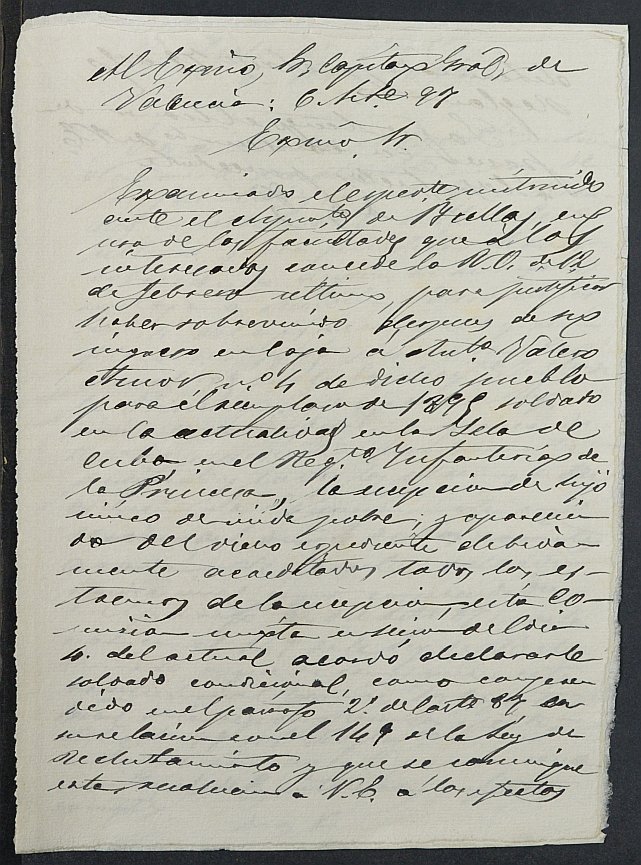 Al Excmo. Sr. Capitan Gral. de
Valencia: 6 Nbre 97
Excmo. Sr.
Examinado el expedte instruido
ante el Ayunto de Huellas, en
uso de las facultades que á los
interesados concede la R.O. de 12
de febrero ultimo para justificar
haber sobrevenido despues de su
ingreso en Caja á Anto Valero
Amor nº 4 de dicho pueblo
para el reemplazo de 1895 soldado
en la actualidad en la Isla de
Cuba, en el Regto Infanteria de
la Princesa, la excepcion de hijo
unico de viuda pobre; y aparecien
do del dicho expediente debida-
mente acreditados todos los ex-
tremos de la excepcion, esta Co-
mision mixta en sesion de
4 del actual acordó declararle
soldado condicional, como compren
dido en el parrafo 2º del arto 87 en
su relacion con el 149 de la Ley de
Reclutamiento y que se comunique
esta resolucion a V.E. a los efectos